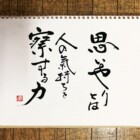 思いやりとは
人の氣持ちを
察する力